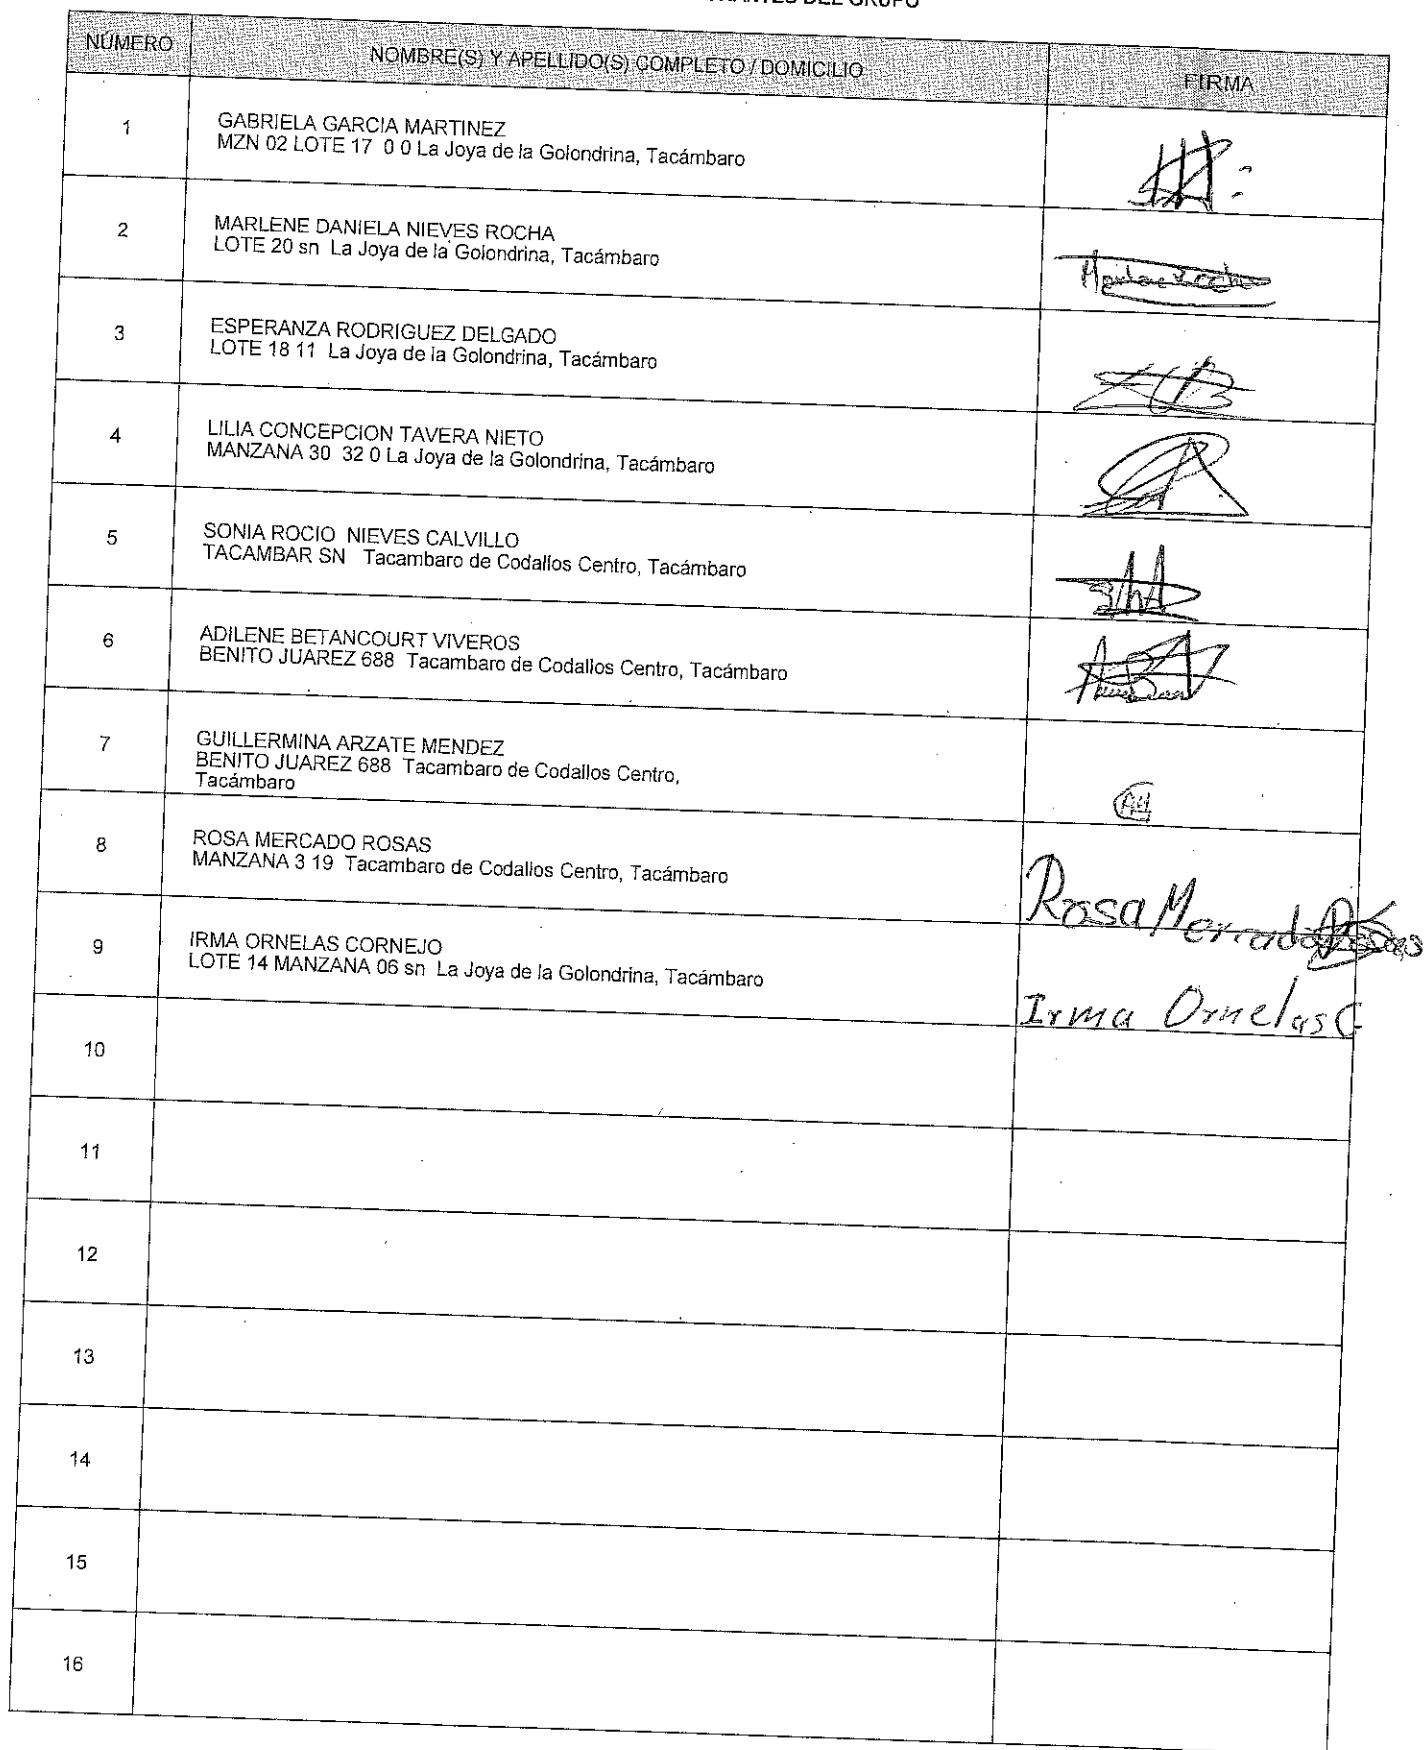 DEL GRUPO
NÚMERO NOMBRE(S) Y APELLIDO(S) COMPLETO / DOMICILIO FIRMA
1 GABRIELA GARCIA MARTINEZ
MZN 02 LOTE 17 0 0 La Joya de la Golondrina, Tacámbaro
2 MARLENE DANIELA NIEVES ROCHA
LOTE 20 sn La Joya de la Golondrina, Tacámbaro
3 ESPERANZA RODRIGUEZ DELGADO
LOTE 18 11 La Joya de la Golondrina, Tacámbaro
4 LILIA CONCEPCION TAVERA NIETO
MANZANA 30 32 0 La Joya de la Golondrina, Tacámbaro
5 SONIA ROCIO NIEVES CALVILLO
TACAMBAR SN Tacambaro de Codallos Centro, Tacámbaro
6 ADILENE BETANCOURT VIVEROS
BENITO JUAREZ 688 Tacambaro de Codallos Centro, Tacámbaro
7 GUILLERMINA ARZATE MENDEZ
BENITO JUAREZ 688 Tacambaro de Codallos Centro,
Tacámbaro
8 ROSA MERCADO ROSAS
MANZANA 3 19 Tacambaro de Codallos Centro, Tacámbaro
Rosa Mercado Rosas
9 IRMA ORNELAS CORNEJO
LOTE 14 MANZANA 06 sn La Joya de la Golondrina, Tacámbaro
Irma Ornelas C
10
11
12
13
14
15
16